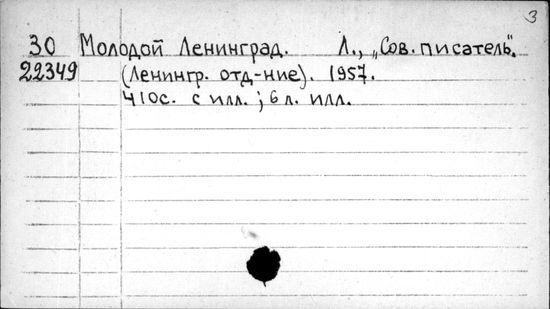 3
30 Молодой Ленинград. Л., „Сов. писатель".
22349 (Ленингр. отд-ние). 1957.
410с. с илл.; 6 л. илл.